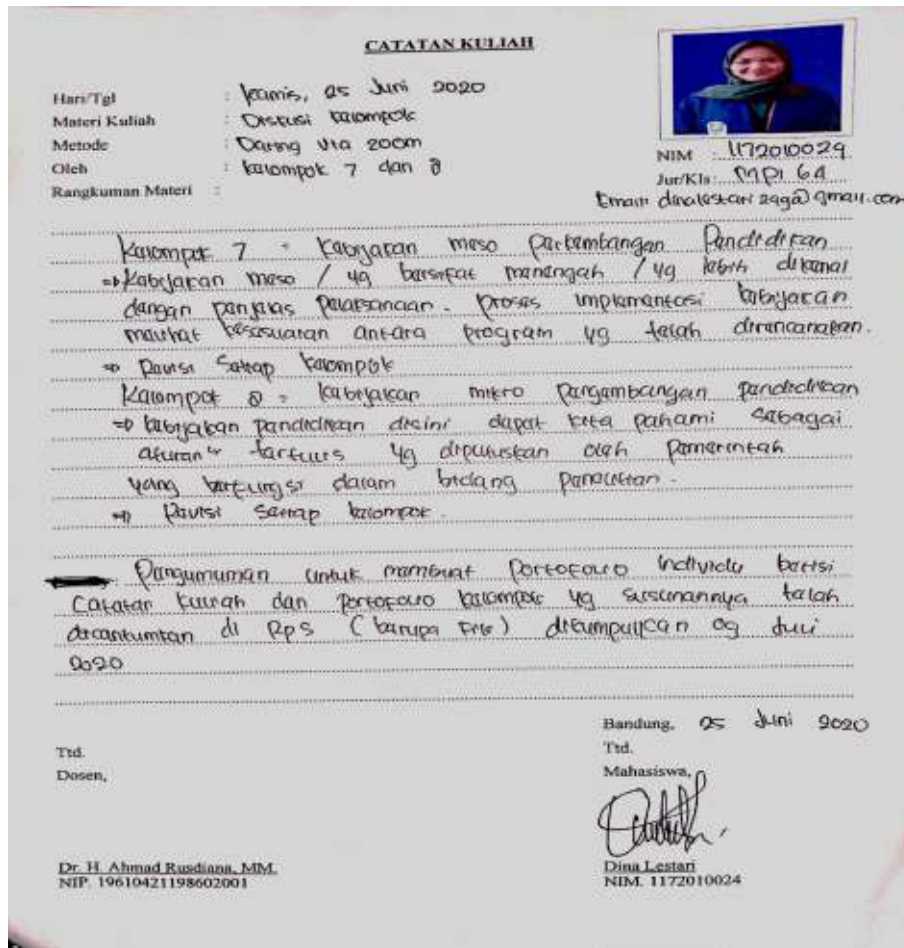 CATATAN KULIAH
Hari/Tgl : Kamis, 25 Juni 2020
Materi Kuliah : Diskusi kelompok
Metode : Daring via zoom
Oleh : kelompok 7 dan 8
Rangkuman Materi :
NIM : 1172010029
Jur/Kls : MPI 6A
Email: dinalestari299@gmail.com
Kelompok 7 = Kebijakan meso perkembangan Pendidikan
=> Kebijakan meso / yg bersifat menengah / yg lebih dikenal
dengan penjelas pelaksanaan. proses implementasi kebijakan
melihat kesesuaian antara program yg telah direncanakan.
=> Revisi Setiap kelompok
Kelompok 8 = kebijakan mikro pengembangan pendidikan
=> kebijakan pendidikan disini dapat kita pahami sebagai
aturan" tertulis yg diputuskan oleh pemerintah
yang berfungsi dalam bidang pendidikan.
=> Revisi Setiap kelompok.
Pengumuman untuk membuat portofolio individu berisi
Catatan kuliah dan portofolio kelompok yg susunannya telah
dicantumkan di RPS (berupa File) dikumpulkan 09 Juli
2020
Bandung, 25 Juni 2020
Ttd.
Dosen,
Ttd.
Mahasiswa,
Dr. H. Ahmad Rusdiana, MM.
NIP. 19610421198602001
Dina Lestari
NIM. 1172010024